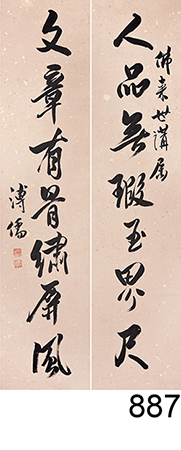 佛来世講屬
人品無瑕玉界尺
文章有骨繡屏風
溥儒
887